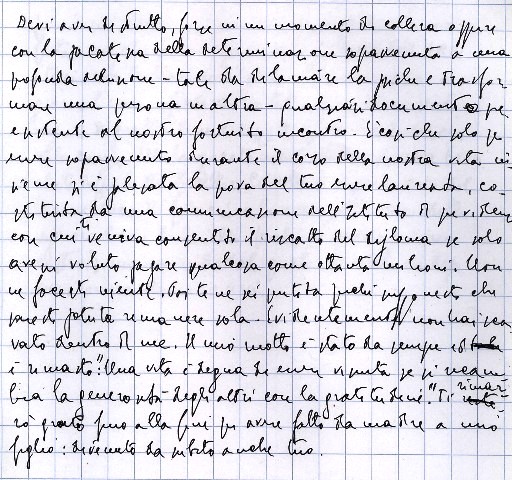 Devi aver distrutto, forse in un momento di collera oppure
con la pacatezza della determinazione sopravvenuta a una
profonda delusione – tale da dilaniare la psiche e trasfor
mare una persona in altra – qualsiasi documento pre
esistente al nostro fortuito incontro. È così che solo per
essere sopravvenuto durante il corso della nostra vita in-
sieme si è salvata la prova del tuo essere laureata, co-
stituita da una comunicazione dell'Istituto di previdenza
con cui ti veniva consentito il riscatto del diploma se solo
avessi voluto pagare qualcosa come ottanta milioni. Non
ne facesti niente. Poi te ne sei pentita perché supponesti che
saresti potuta rimanere sola. Evidentemente non hai sca
vato dentro di me. Il mio motto è stato da sempre
è rimasto: "Una vita è degna di essere vissuta se si ricam
bia la generosità degli altri con la gratitudine." Ti rimar-
rò grato fino alla fine per avere fatto da madre a mio
figlio: divenuto da subito anche tuo.